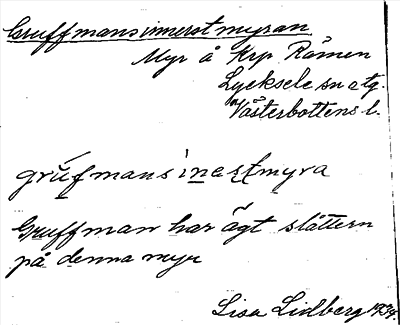 Gruffmansinnerstmyran
Myr å Krp Råmen
Lycksele sn o tg.
Västerbottens l.
grufmansinestmyra
Gruffman har ägt slåttern
på denna myr
Lisa Lidberg 1934.